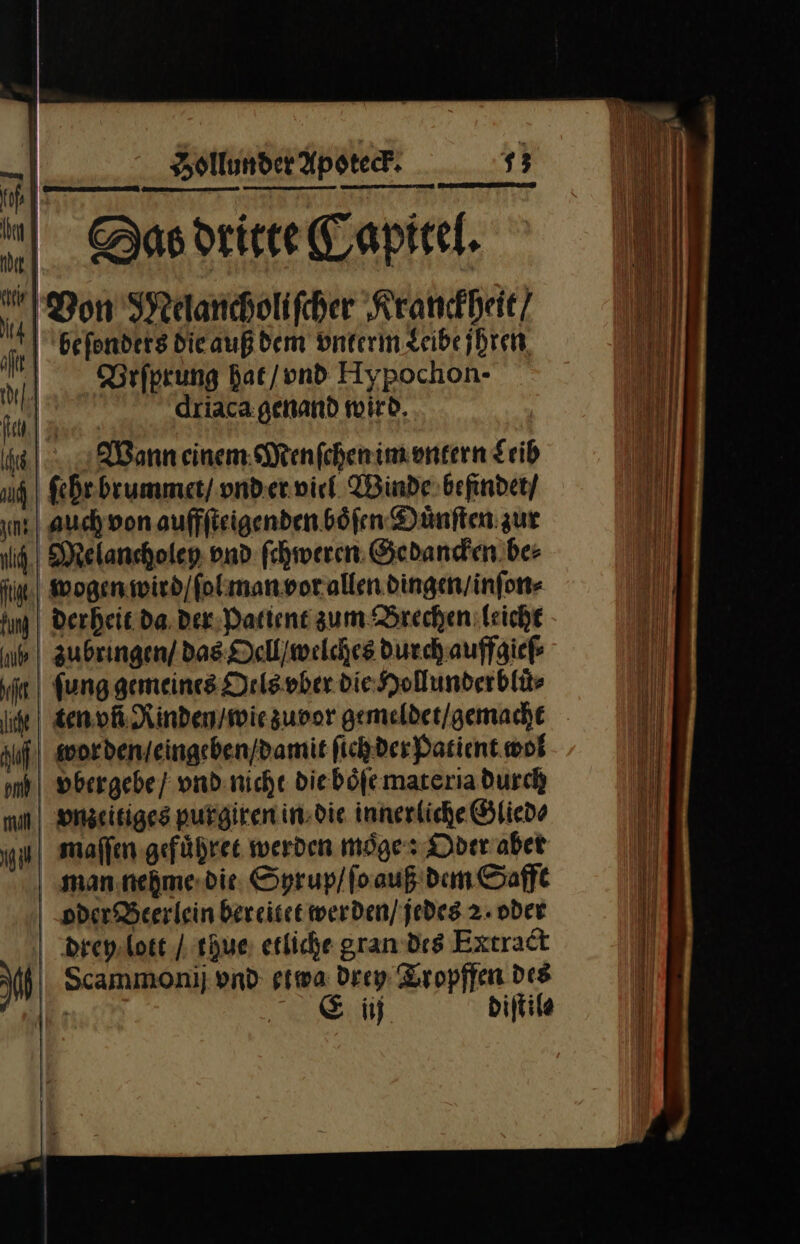 Hollunder Apoteck. 53
Das dritte Capitel.
Von Melancholiſcher Kranckheit/
beſonders die auß dem vnterm Leibe jhren
Vrſprung hat/ vnd Hypochon-
driaca genand wird.
Wann einem Menſchen im vntern Leib
ſehr brummet/ vnd er viel Winde befindet/
auch von auffſteigenden boͤſen Duͤnſten zur
Melancholey vnd ſchweren Gedancken be-
wogen wird/ ſol man vor allen dingen/ inſon-
derheit da der Patient zum Brechen leicht
zubringen/ das Oell/ welches durch auffgieſ-
ſung gemeines Oels vber die Hollunderbluͤ-
ten vñ Rinden/ wie zuvor gemeldet/ gemacht
worden/ eingeben/ damit ſich der Patient wol
vbergebe/ vnd nicht die boͤſe materia durch
vnzeitiges purgiren in die innerliche Glied-
maſſen gefuͤhret werden moͤge: Oder aber
man nehme die Syrup/ ſo auß dem Safft
oder Beerlein bereitet werden/ jedes 2. oder
drey lott / thue etliche gran des Extract
Scammonij vnd etwa drey Tropffen des
E iij diſtil-